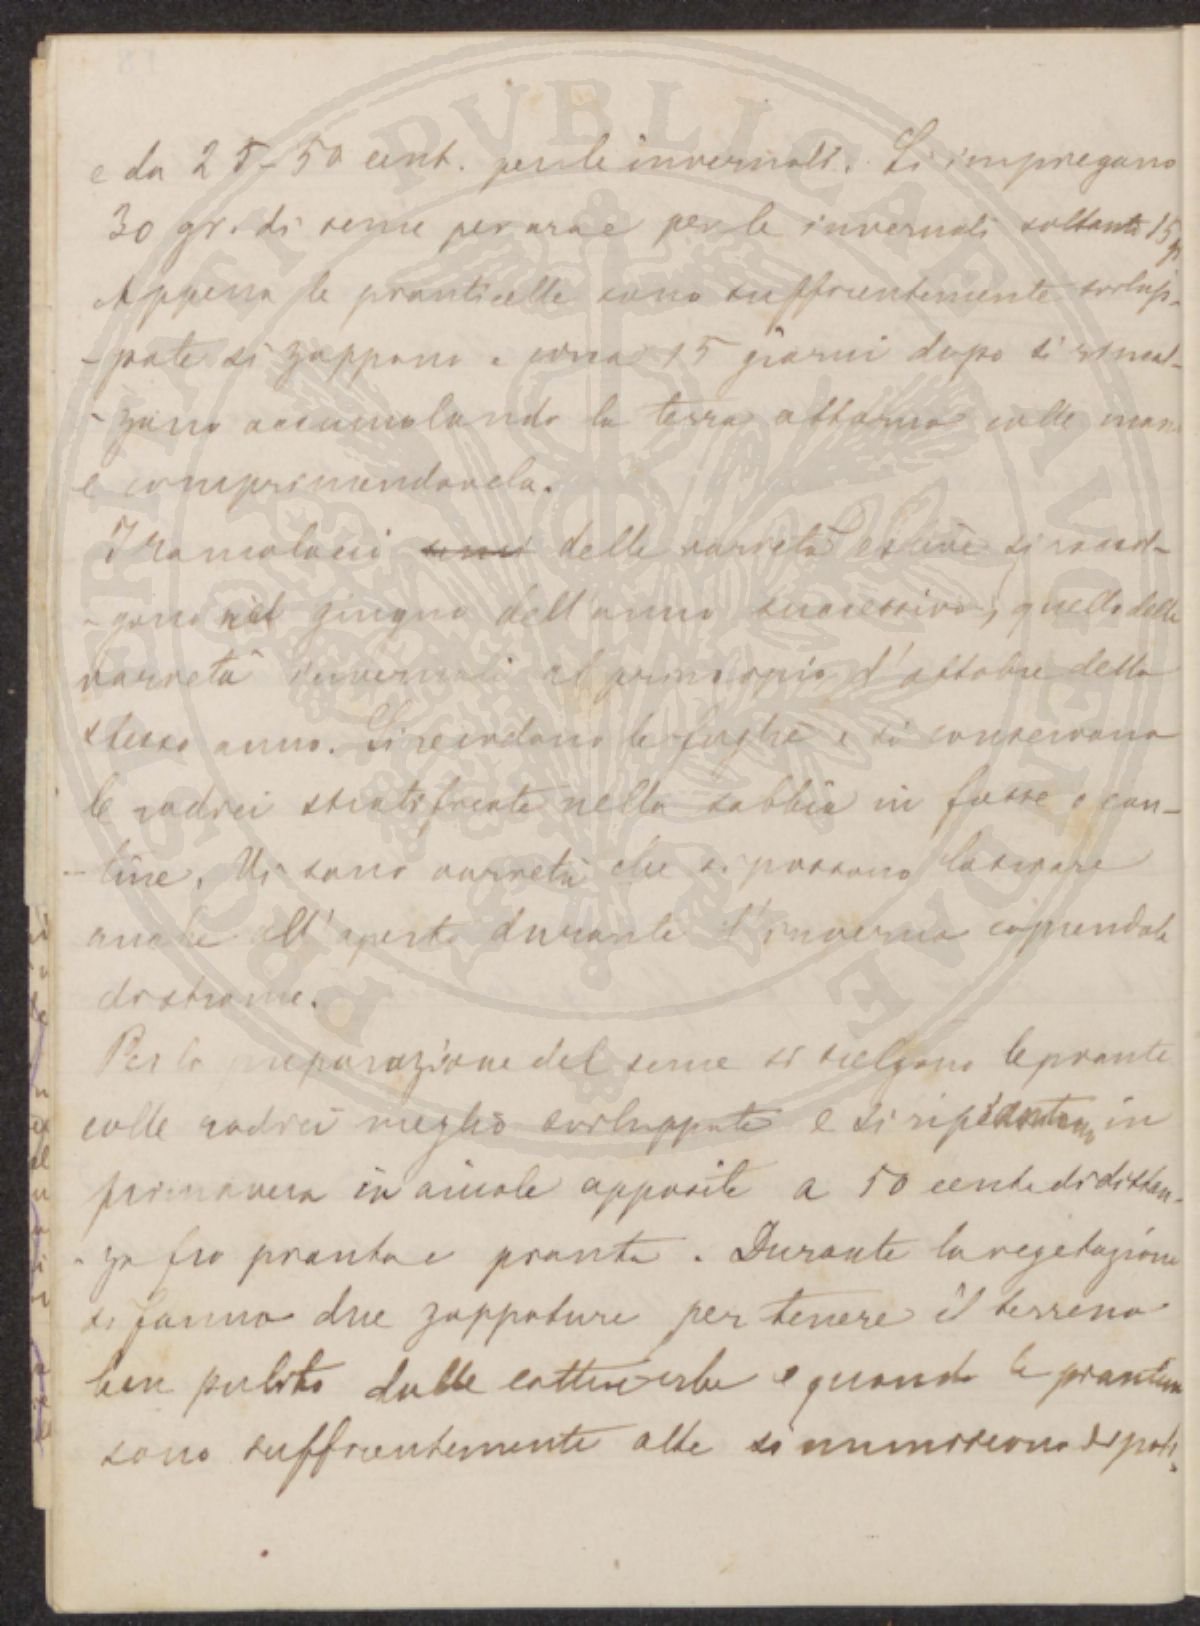 e da 25-50 cent. per le invernali. Si impregano
30 gr. di seme per ara e per le invernali soltanto 15 gr
Appena le pianticelle sono sufficientemente svilup-
-pate si zappano e circa 15 giorni dopo si rincal-
-zano accumolando la terra attorno colle mani
e comprimendovela.
I Ramolacci delle varietà estive si raccol-
-gono nel giugno dell'anno successivo, quello delle
varietà invernali al principio d'ottobre dello
stesso anno. Si recidono le foglie e si conservano
le radici stratificate nella sabbia in fosse o can-
-tine. Vi sono varietà che si possono lasciare
anche all'aperto durante l'inverno coprendole
di strame.
Per la preparazione del seme si scelgono le piante
colle radici meglio sviluppate e si ripiantano in
primavera in aiuole apposite a 50 cent. di distan-
-za fra pianta e pianta. Durante la vegetazione
si fanno due zappature per tenere il terreno
ben pulito dalle cattive erbe e quando le piantine
sono sufficientemente alte si muniscono di pali.
PROSPERITATI PVBLICAE AVGENDAE